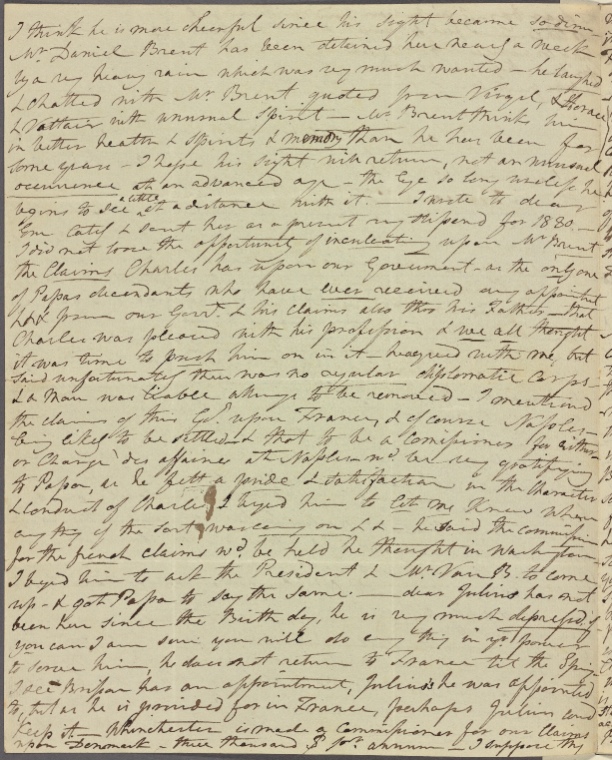 I think he is more cheerful since his sight became so dim—
Mr Daniel Brent has been detained here nearly a week
by a very heavy rain which was very much wanted — he laughed
& chatted with Mr Brent quoted from Virgil, & Horace
& Voltair with unusual spirit — Mr Brent think him
in better health & spirits & memory than he has been for
some years — I hope his sight will return, not an unusual
occurrence at an advanced age — the Eye so long useless he
begins to see a little at a distance with it — I wrote to dear
Em: Cat & sent her as a present my stipend for 1830 —
I did not loose the opportunity of inculcating upon Mr Brent
the Claims Charles has upon our Government — as the only one
of Papas descendants who have ever received any appointmt
&&& from our Govrt. & his claims also thro his Father — that
Charles was pleased with his profession & we all thought
it was time to push him on in it — he agreed with me, but
said unfortunately there was no regular diplomatic Corps —
& a Man was liable always to be removed — I mentioned
the claims of this Gt. upon France, & of course Naples —
being likely to be settled & that to be a Comissioner for either
or Chargé des affaires at Naples wd. be very gratifying
to Papa, as he felt a pride & satisfaction in the Character
& conduct of Charles I beged him to let me know when
any thg of the sort was coming on && — he said the commission
for the french claims wd. be held he thought in Washington —
I beged him to ask the President & Mr. Van B. to come
up — & got Papa to say the same. — dear Julius has not
been here since the Birth day, he is very much depressed, if
you can I am sure you will do any thg in yr. power
to serve him, he does not return to France til the Spring
I see has an appointment, Julius he was appointed
to, but as he is provided for in France, perhaps Julius could
keep it — Whinchester is made a Commissioner for our Claims
upon Denmark — three thousand $ pr. annum — I suppose this